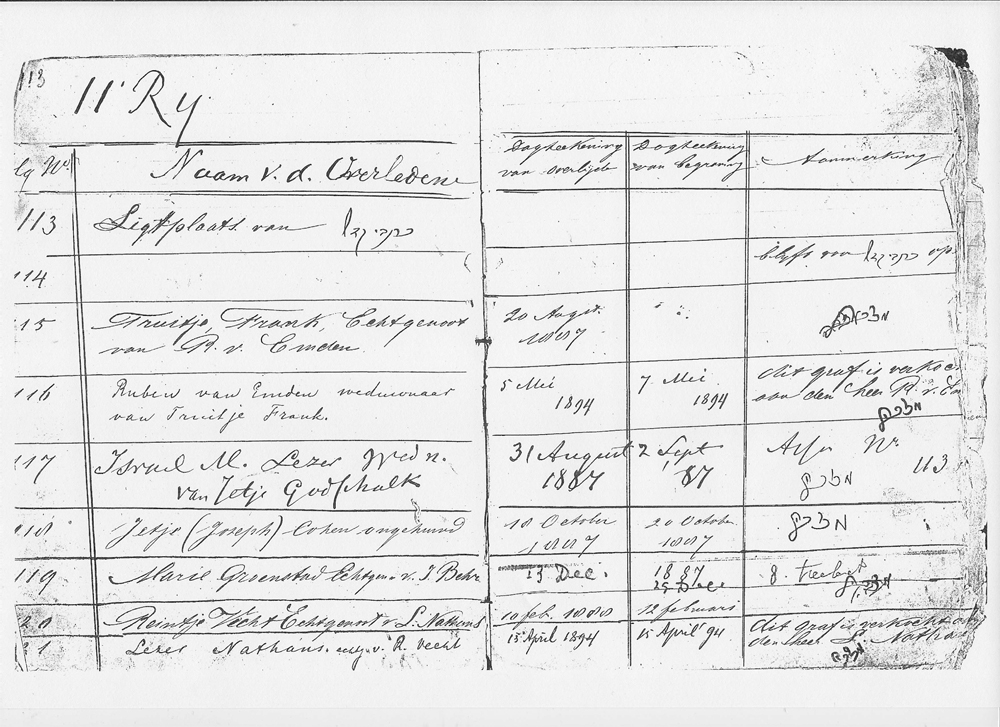 113
11e Ry.
lg No.
Naam v. d. Overledene
Dagteekening van overlijden
Dagteekening van begraving
Aanmerking
113
Ligtplaats van
114
blyft van
115
Truitje, Frank, Echtgenoot
van R. v. Emden
20 August.
1887
" "
116
Ruben van Emden weduwnaar
van Truitje Frank.
5 Mei
1894
7 Mei
1894
dit graf is
aan den heer R. v.
117
Israel M. Lezer Wedn.
van Jetje Godschalk
31 August
1887
2 Sept
'87
No
113
118
Jetje (Joseph) Cohen ongehuwd
18 October
1887
20 October
1887
119
Marie Groenstad Echtgen. v. J. Behr
23 Dec.
1887
25 Dec
8. Teebet
20
Reintje Vecht Echtgenoot v L. Nathans
10 feb. 1888
12 februari
dit graf is verkocht
21
Lezer Nathans. v. R. Vecht
15 April 1894
15 April 94
den heer L. Nathans